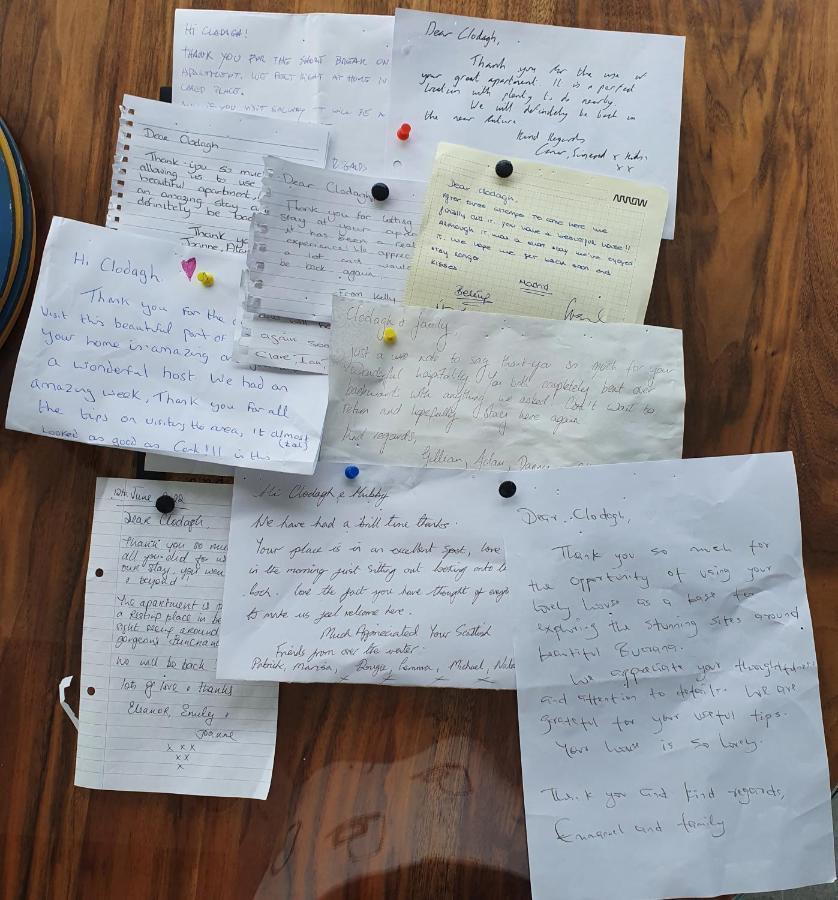 Hi Clodagh!
Thank you for the short break on
apartment. We felt right at home in
place.
if you visit Galway
Dear Clodagh,
Thank you for the use of
your great apartment. It is a perfect
location with plenty to do nearby.
We will definitely be back in
the near future
Kind Regards
x x
Dear Clodagh
Thank you so much
allowing us to use
beautiful apartment,
an amazing stay a
definitely be back
Thank y
Dear Clodagh
Thank you for letting
stay at your
it has been a real
experience. We apprec
a lot and would
be back again.
From Kelly
again soon
Clare, Ian,
arrow
Dear Clodagh,
After three attempts to come here we
finally did it. You have a beautiful house!!
Although it was a short stay we've enjoyed
it. We hope we get back soon and
stay longer
kisses
Madrid
Hi Clodagh
Thank you for the
visit this beautiful part of
your home is amazing a
a wonderful host. We had an
amazing week, Thank you for all
the tips on visiting the area, it almost
looked as good as Cork!!! in the
Clodagh & family
Just a wee note to say thank-you so much for your
wonderful hospitality. You both completely bent over
backward with anything we asked. Can't wait to
return and hopefully stay here again
Kind regards,
Gillian, Adam,
12th June 2022
Dear Clodagh,
Thank you so mu
all you did for u
our stay, you wen
& beyond
The apartment is
a resting place in be
sight seeing around
gorgeous
We will be back
lots of love & thanks
Eleanor, Emily &
Joanne
x x x
x x
x
Hi Clodagh & Hubby
We have had a brill time thanks.
Your place is in an excellent spot, love
in the morning just sitting out looking onto
loch. Love the fact you have thought of
to make us feel welcome here.
Much Appreciated Your Scottish
Friends from over the water.
Patrick, Marisa, Dougie, Gemma, Michael,
Dear Clodagh,
Thank you so much for
the opportunity of using your
lovely house as a base for
exploring the stunning sites around
beautiful Burren.
We appreciate your thoughtfulness
and attention to details. We are
grateful for your useful tips.
Your house is so lovely.
Thank you and kind regards,
Emanuel and family